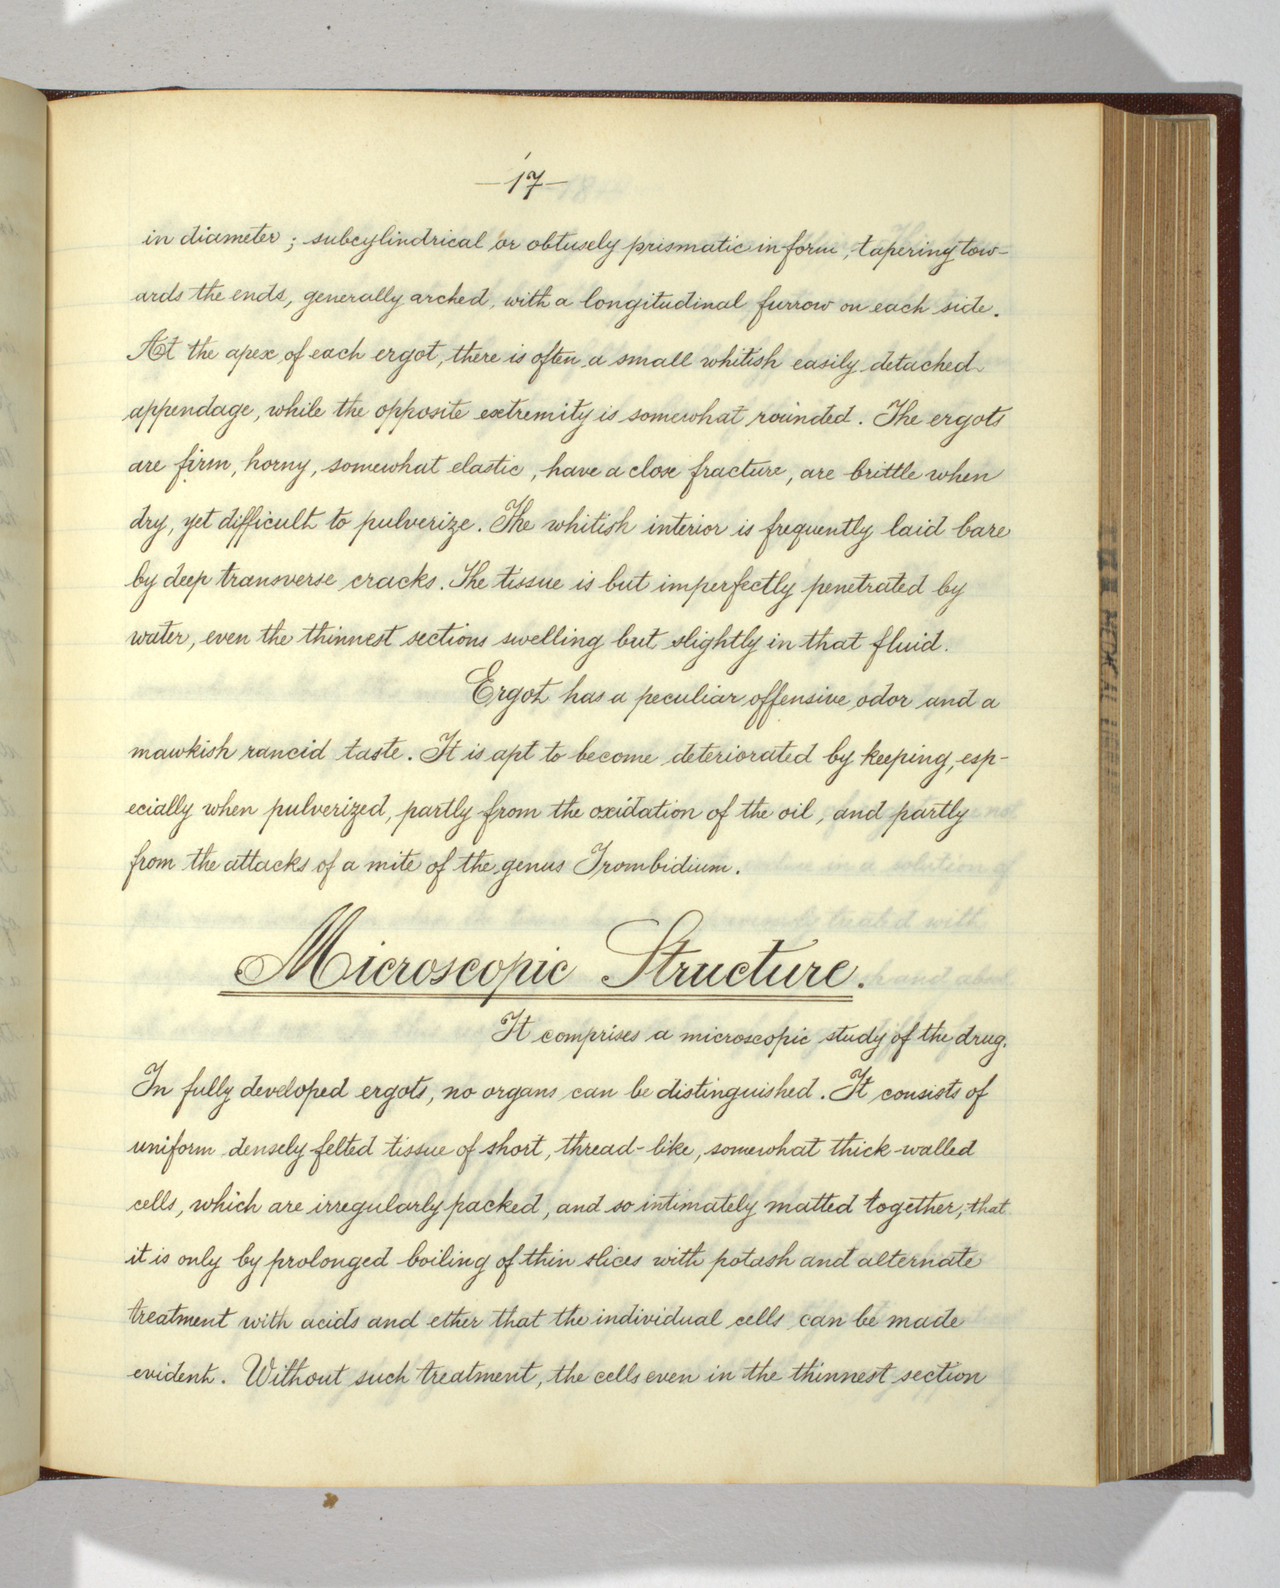 —17—
in diameter; subcylindrical or obtusely prismatic in form, tapering tow-
ards the ends, generally arched, with a longitudinal furrow on each side.
At the apex of each ergot, there is often a small whitish easily detached
appendage, while the opposite extremity is somewhat rounded. The ergots
are firm, horny, somewhat elastic, have a close fracture, are brittle when
dry, yet difficult to pulverize. The whitish interior is frequently laid bare
by deep transverse cracks. The tissue is but imperfectly penetrated by
water, even the thinnest sections swelling but slightly in that fluid.
Ergot has a peculiar offensive odor and a
mawkish rancid taste. It is apt to become deteriorated by keeping, esp-
ecially when pulverized, partly from the oxidation of the oil, and partly
from the attacks of a mite of the genus Trombidium.
Microscopic Structure.
It comprises a microscopic study of the drug.
In fully developed ergots, no organs can be distinguished. It consists of
uniform densely felted tissue of short, thread-like, somewhat thick-walled
cells, which are irregularly packed, and so intimately matted together, that
it is only by prolonged boiling of thin slices with potash and alternate
treatment with acids and ether that the individual cells can be made
evident. Without such treatment, the cells even in the thinnest section